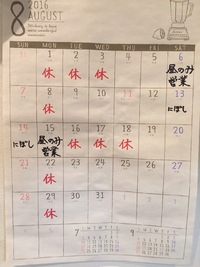 8
2016
AUGUST
SUN MON TUE WED THU FRI SAT
1 2 3 4 5 6
休 休 休 昼のみ
営業
7 8 9 10 11 12 13
休 にぼし
14 15 16 17 18 19 20
にぼし 昼のみ 休 休 休
営業
21 22 23 24 25 26 27
休
28 29 30 31
休
7 9